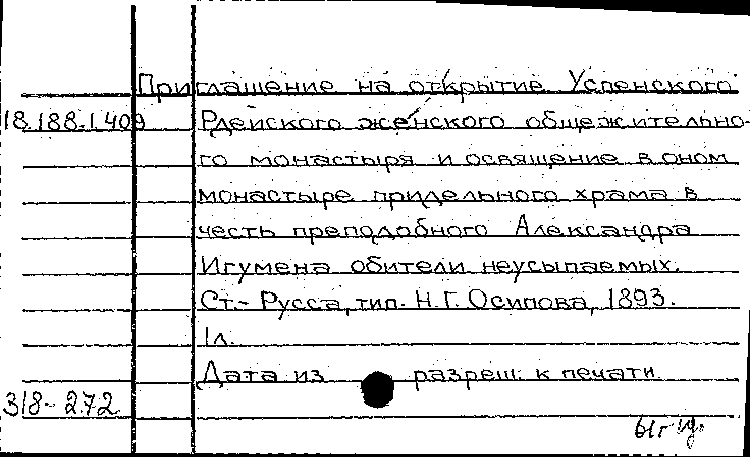 Приглашение на открытие Успенского
18.188.1.409 Рдейского женского общежительно-
го монастыря и освящение в оном
монастыре придельного храма в
честь преподобного Александра
Игумена обители неусыпаемых.
Ст.-Русса, тип. Н.Г. Осипова, 1893.
1л.
Дата из разреш. к печати
318-272